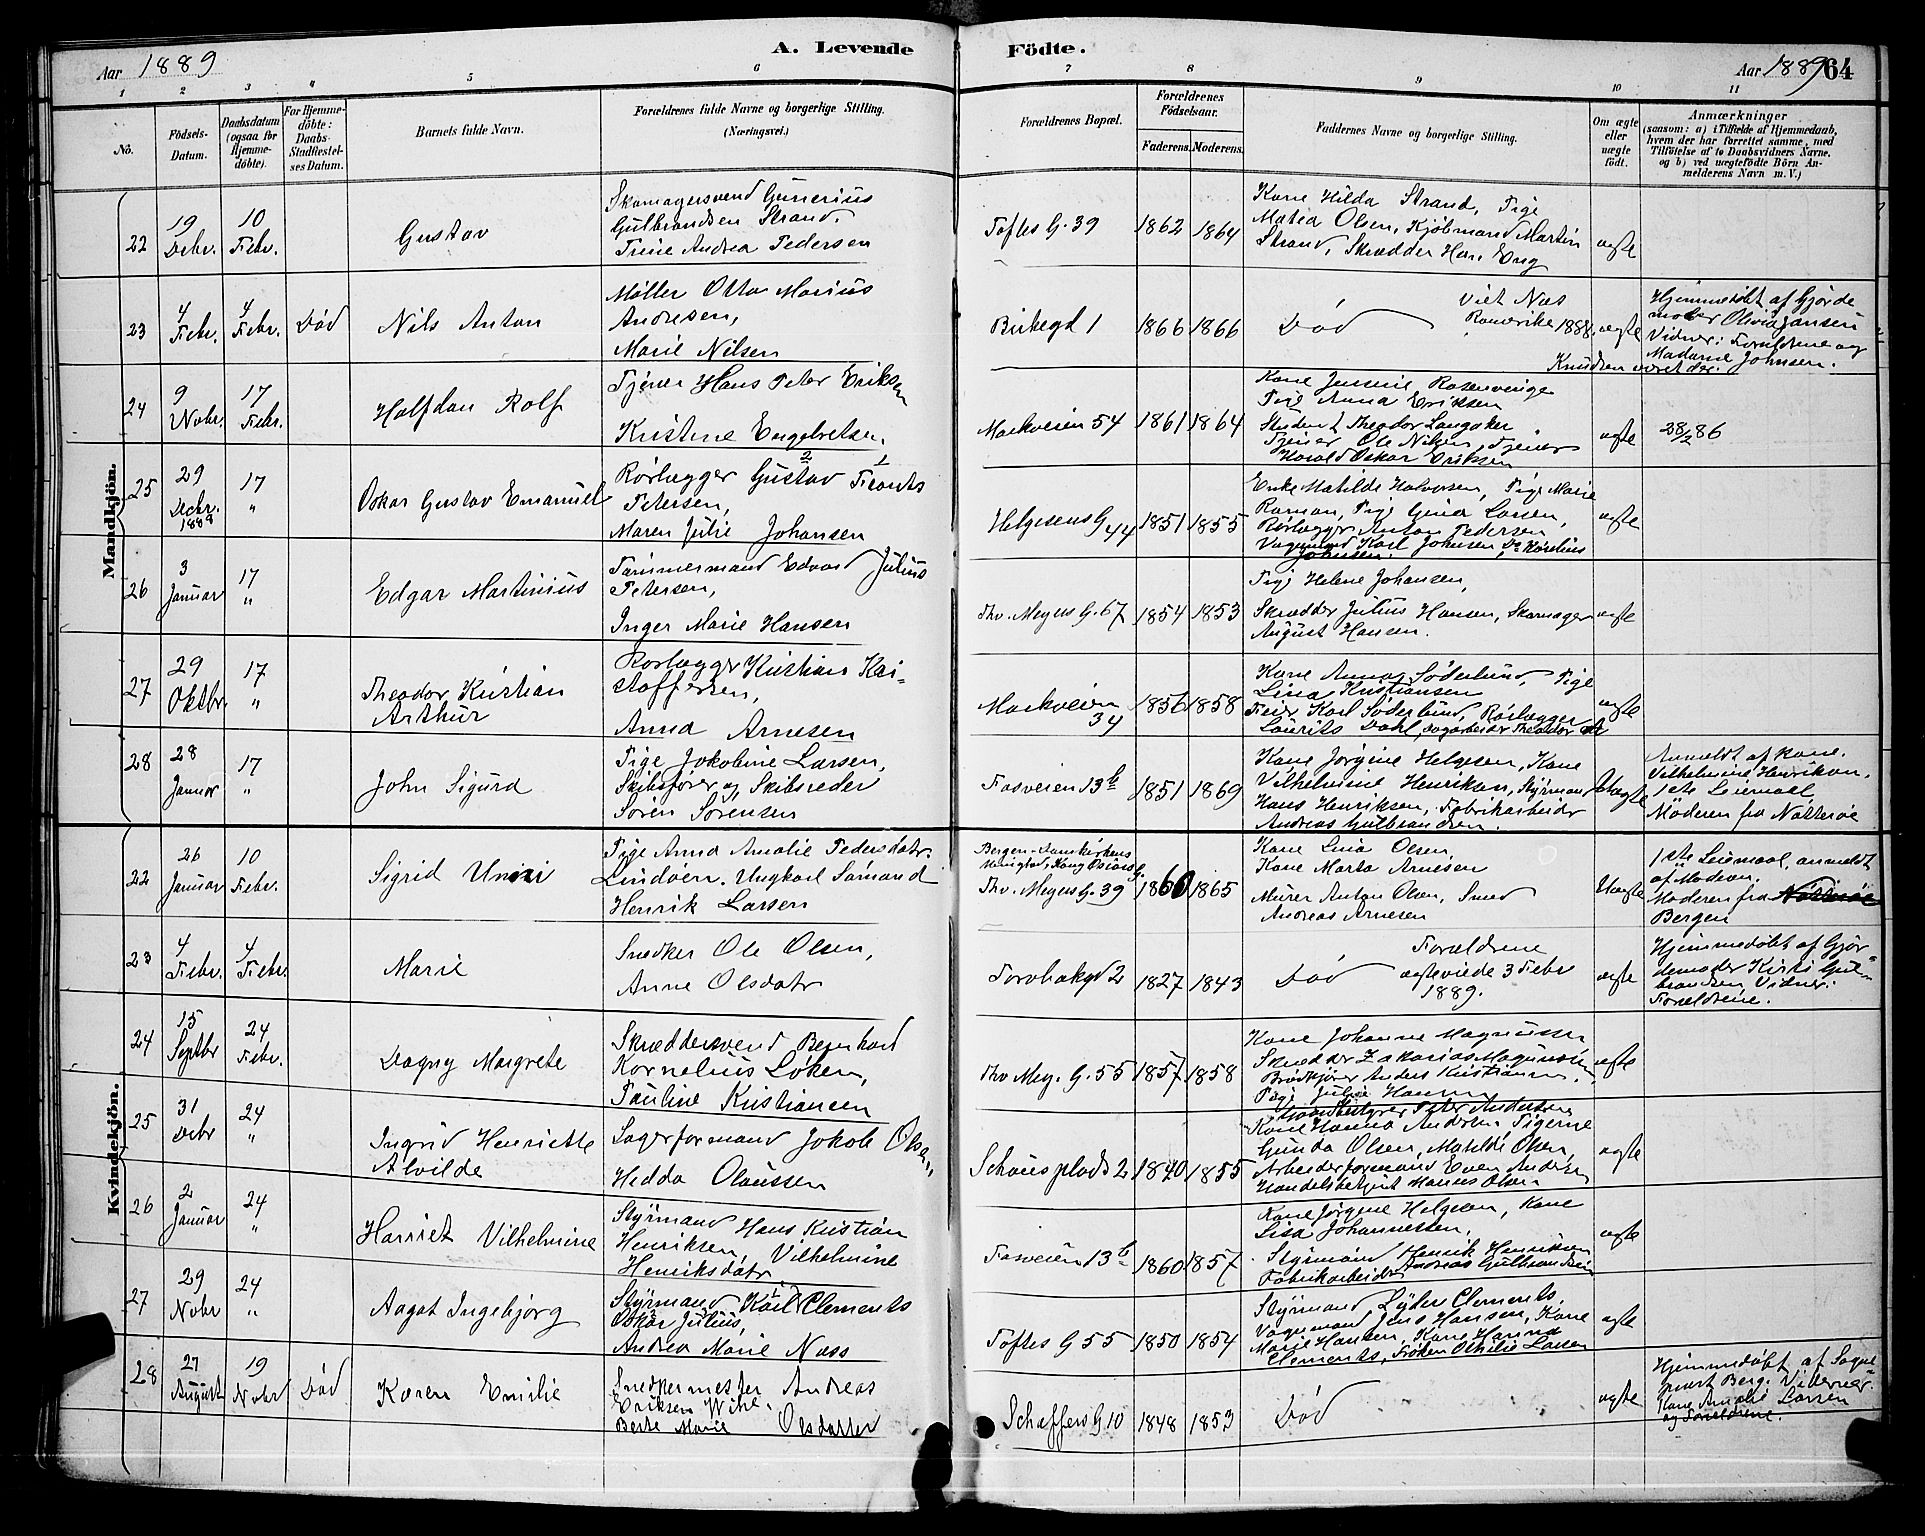 A. Levende Födte.
Aar 1889
Aar 1889
64
1 2 3 4 5 6 7 8 9 10 11
No.
Födsels-
Datum.
Daabsdatum
(ogsaa for
Hjemme-
döbte).
For Hjemme-
döbte:
Daabs-
Stadfæstel-
ses Datum.
Barnets fulde Navn.
Forældrenes fulde Navne og borgerlige Stilling.
(Næringsvei.)
Forældrenes Bopæl.
Forældrenes
Födselsaar.
Faderens. Moderens.
Faddernes Navne og borgerlige Stilling.
Om ægte
eller
uægte
födt.
Anmærkninger
(saasom: a) i Tilfælde af Hjemmedaab,
hvem der har forrettet samme, med
Tilföielse af to Daabsvidners Navne,
og b) ved uægtefödte Börn An-
melderens Navn m. V.)
Mandkjön.
22
19 Debr.
10 Febr.
Gustav
Skomagersvend Gunerius
Gulbrandsen Strand.
Trine Andrea Pedersen
Toftes G. 39
1862 1864
Kone Hilda Strand, Pige
Matea Olsen, Kjöbmand Martin
Strand, Skrædder Hans Eng
ægte
23
4 Febr.
4 Febr.
Död
Nils Anton
Møller Otto Marius
Andresen,
Marie Nilsen
Birkegd 1
1866 1866
Död
Viet Næs
Romerike 1888.
ægte
Hjemmedøbt af Gjorde
moder Olivia Jansen
Vidner: Forældrene og
Madame Johnsen.
24
9 Nobr.
17 Febr.
Halfdan Rolf
Tjener Hans Peter Eriksen
Kristine Engebretsen.
Markveien 54
1861 1864
Kone Jensine Rosenvinge
Pige Anna Eriksen
Student Theodor Langaker
Tjener Ole Nilsen, Tjener
Harald Oskar Eriksen
ægte
28/2 86
25
29 Decbr. 1888
17 "
Oskar Gustav Emanuel
Rørlægger Gustav Frants
Petersen,
Maren Julie Johansen
Helgesens G 44
1851 1855
Enke Matilde Halvorsen, Pige Marie
Roman, Pige Gina Larsen,
Rørlægger Anton Pedersen
Vognmand Karl Johnsen, Do Karelius
Johnsen.
ægte
26
3 Januar
17 "
Edgar Martinius
Tømmermand Edvard Julius
Petersen,
Inger Marie Hansen
Thv. Meyers G. 67
1854 1853
Pige Helene Johansen,
Skrædder Julius Hansen, Skomager
August Hansen.
ægte
27
29 Oktbr.
17 "
Theodor Kristian
Arthur
Rørlægger Kristian Kri-
stoffersen,
Anna Arnesen
Markveien
34
1856 1858
Kone Anna Söderlund, Pige
Lina Kristiansen
Feier Karl Söderlund, Rørlægger
Laurits Dahl, Dagarbeider Theodor
ægte
28
28 Januar
17 "
John Sigurd
Pige Jokobine Larsen,
Skibsfører og Skibsreder
Sören Sörensen
Fosveien 13 b
1851 1869
Kone Jørgine Helgesen, Kone
Vilhelmine Henriksen, Styrmand
Hans Henriksen, Fabrikarbeider
Andreas Gulbrandsen.
Uægte
Anmeldt af Kone
Vilhelmine Henriksen.
1ste Leiermaal
Moderen fra Nøtterøe
Kvindekjön.
22
26 Januar
10 Febr.
Sigrid Unni
Pige Anna Amalie Pedersdatr.
Lindøen. Ungkarl Sømand
Henrik Larsen
Bergen-Domkirkens
Menighed, Kong Oscars G.
Thv. Meyers G. 39
1860 1865
Kone Lina Olsen
Kone Marta Arnesen
Murer Anton Olsen, Smed
Andreas Arnesen
Uægte
1ste Leiermaal, anmeldt
af Moderen.
Moderen fra Nøtterøe
Bergen
23
4 Febr.
4 Febr.
Marie
Snedker Ole Olsen,
Anne Olsdatr
Torvbakgd 2
1827 1843
Död
Forældrene
ægteviede 3 Febr
1889.
ægte
Hjemmedøbt af Gjor
demoder Kirsti Gul-
brandsen Vidner:
Forældrene.
24
15 Septbr
24 Febr.
Dagny Margrete
Skræddersvend Bernhard
Kornelius Løken,
Pauline Kristiansen
Thv Mey. G. 55
1857 1858
Kone Johanne Magnussen
Skrædder Zakarias Magnussen
Brødkjører Anders Kristiansen,
Pige Julie Hansen
ægte
25
31 Debr
24 "
Ingrid Henriette
Alvilde
Lagerformand Jakob Olsen,
Hedda Olaussen
Schous plads 2
1840 1855
Handelsbestyrer Peter Andersen
Kone Hanna Andersen, Pigerne
Gunda Olsen, Matilde Olsen,
Arbeiderformand Even Andersen
Handelsbetjent Hannes Olsen
ægte
26
2 Januar
24 "
Harriet Vilhelmine
Styrmand Hans Kristian
Henriksen, Vilhelmine
Henriksdatr
Fosveien 13 b
1860 1857
Kone Jørgine Helgesen, Kone
Lisa Johannessen,
Styrmand Henrik Henriksen
Fabrikarbeider Andreas Gulbrandsen
ægte
27
29 Nobr
24 "
Aagot Ingebjørg
Styrmand Karl Clements
Oskar Julius,
Andrea Marie Næss
Toftes G 55
1850 1854
Styrmand Lyder Clements,
Vognmand Jens Hansen, Kone
Marie Hansen, Kone Hanna
Clements, Frøken Othilie Larsen
ægte
28
27 August
19 Nobr
Död
Karen Emilie
Snedkermester Andreas
Eriksen Wihl.
Berte Marie Olsdatter
Schaffers G 10
1848 1853
Död
ægte
Hjemmedøbt af Sogne
præst Berg. Vidnerne:
Kone Amalie Larsen
og Forældrene.